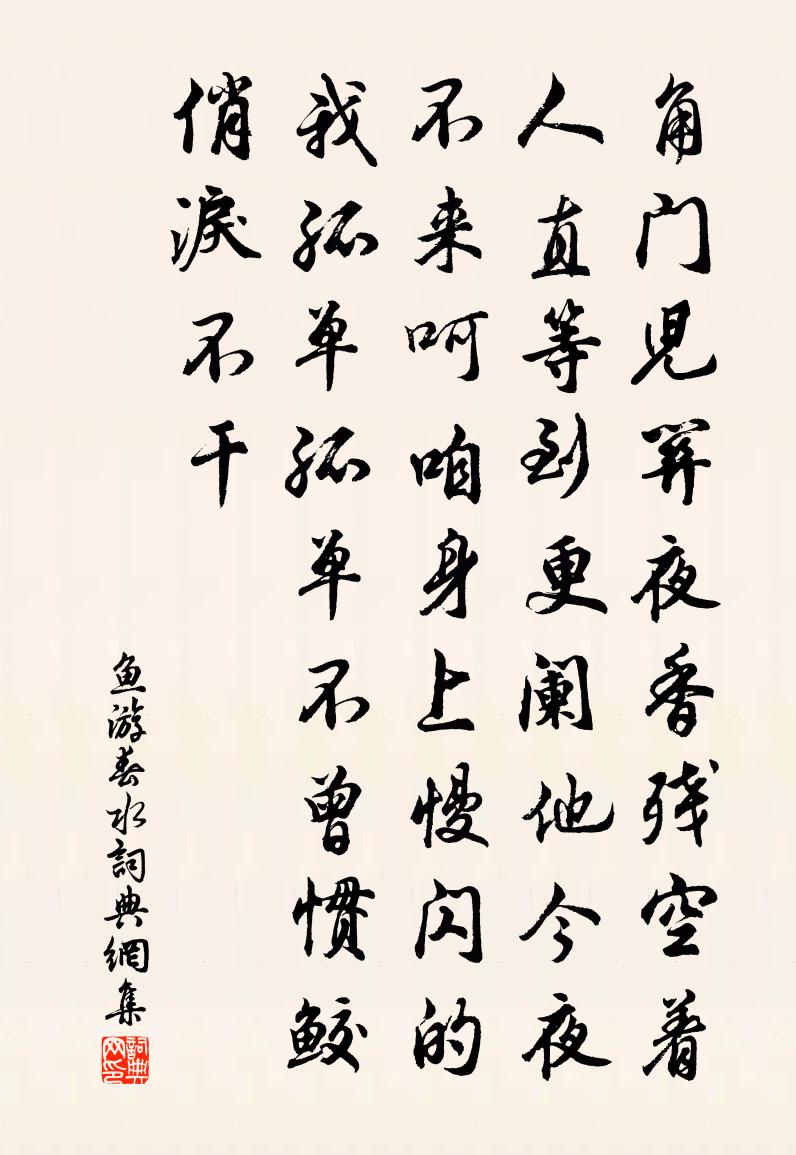 角门児關夜香残空着
人直等到更阑他今夜
不来呵咱身上慢闪的
我孤单孤单不曾惯鲛
俏淚不干
鱼游春水詞典網集
詞典网印